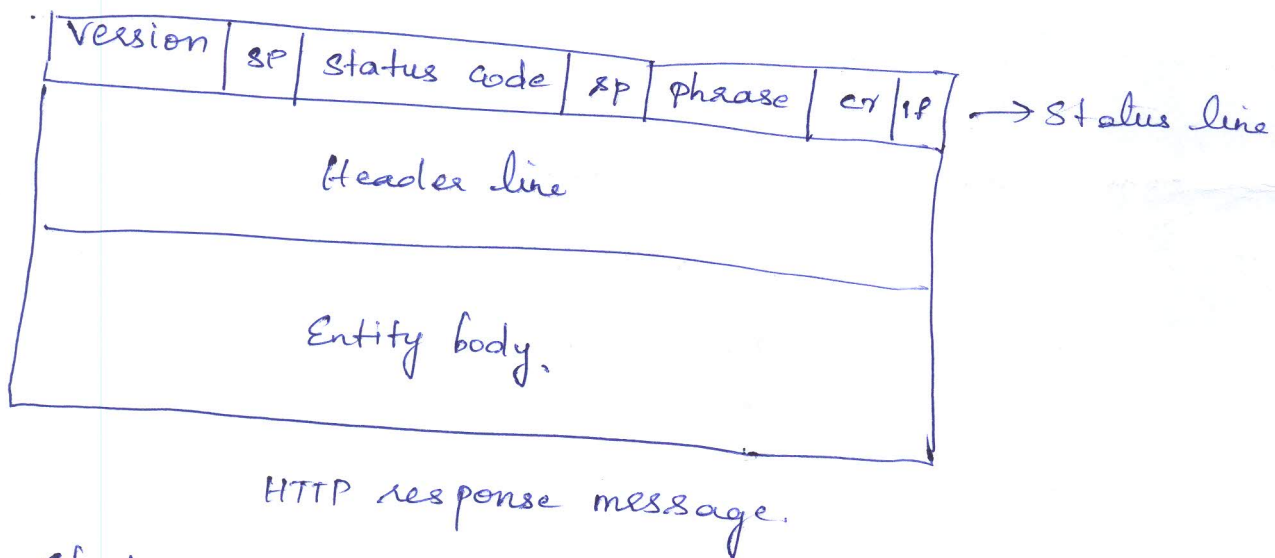 Version sp Status code sp phrase cr lf → Status line
Header line
Entity body.
HTTP response message.